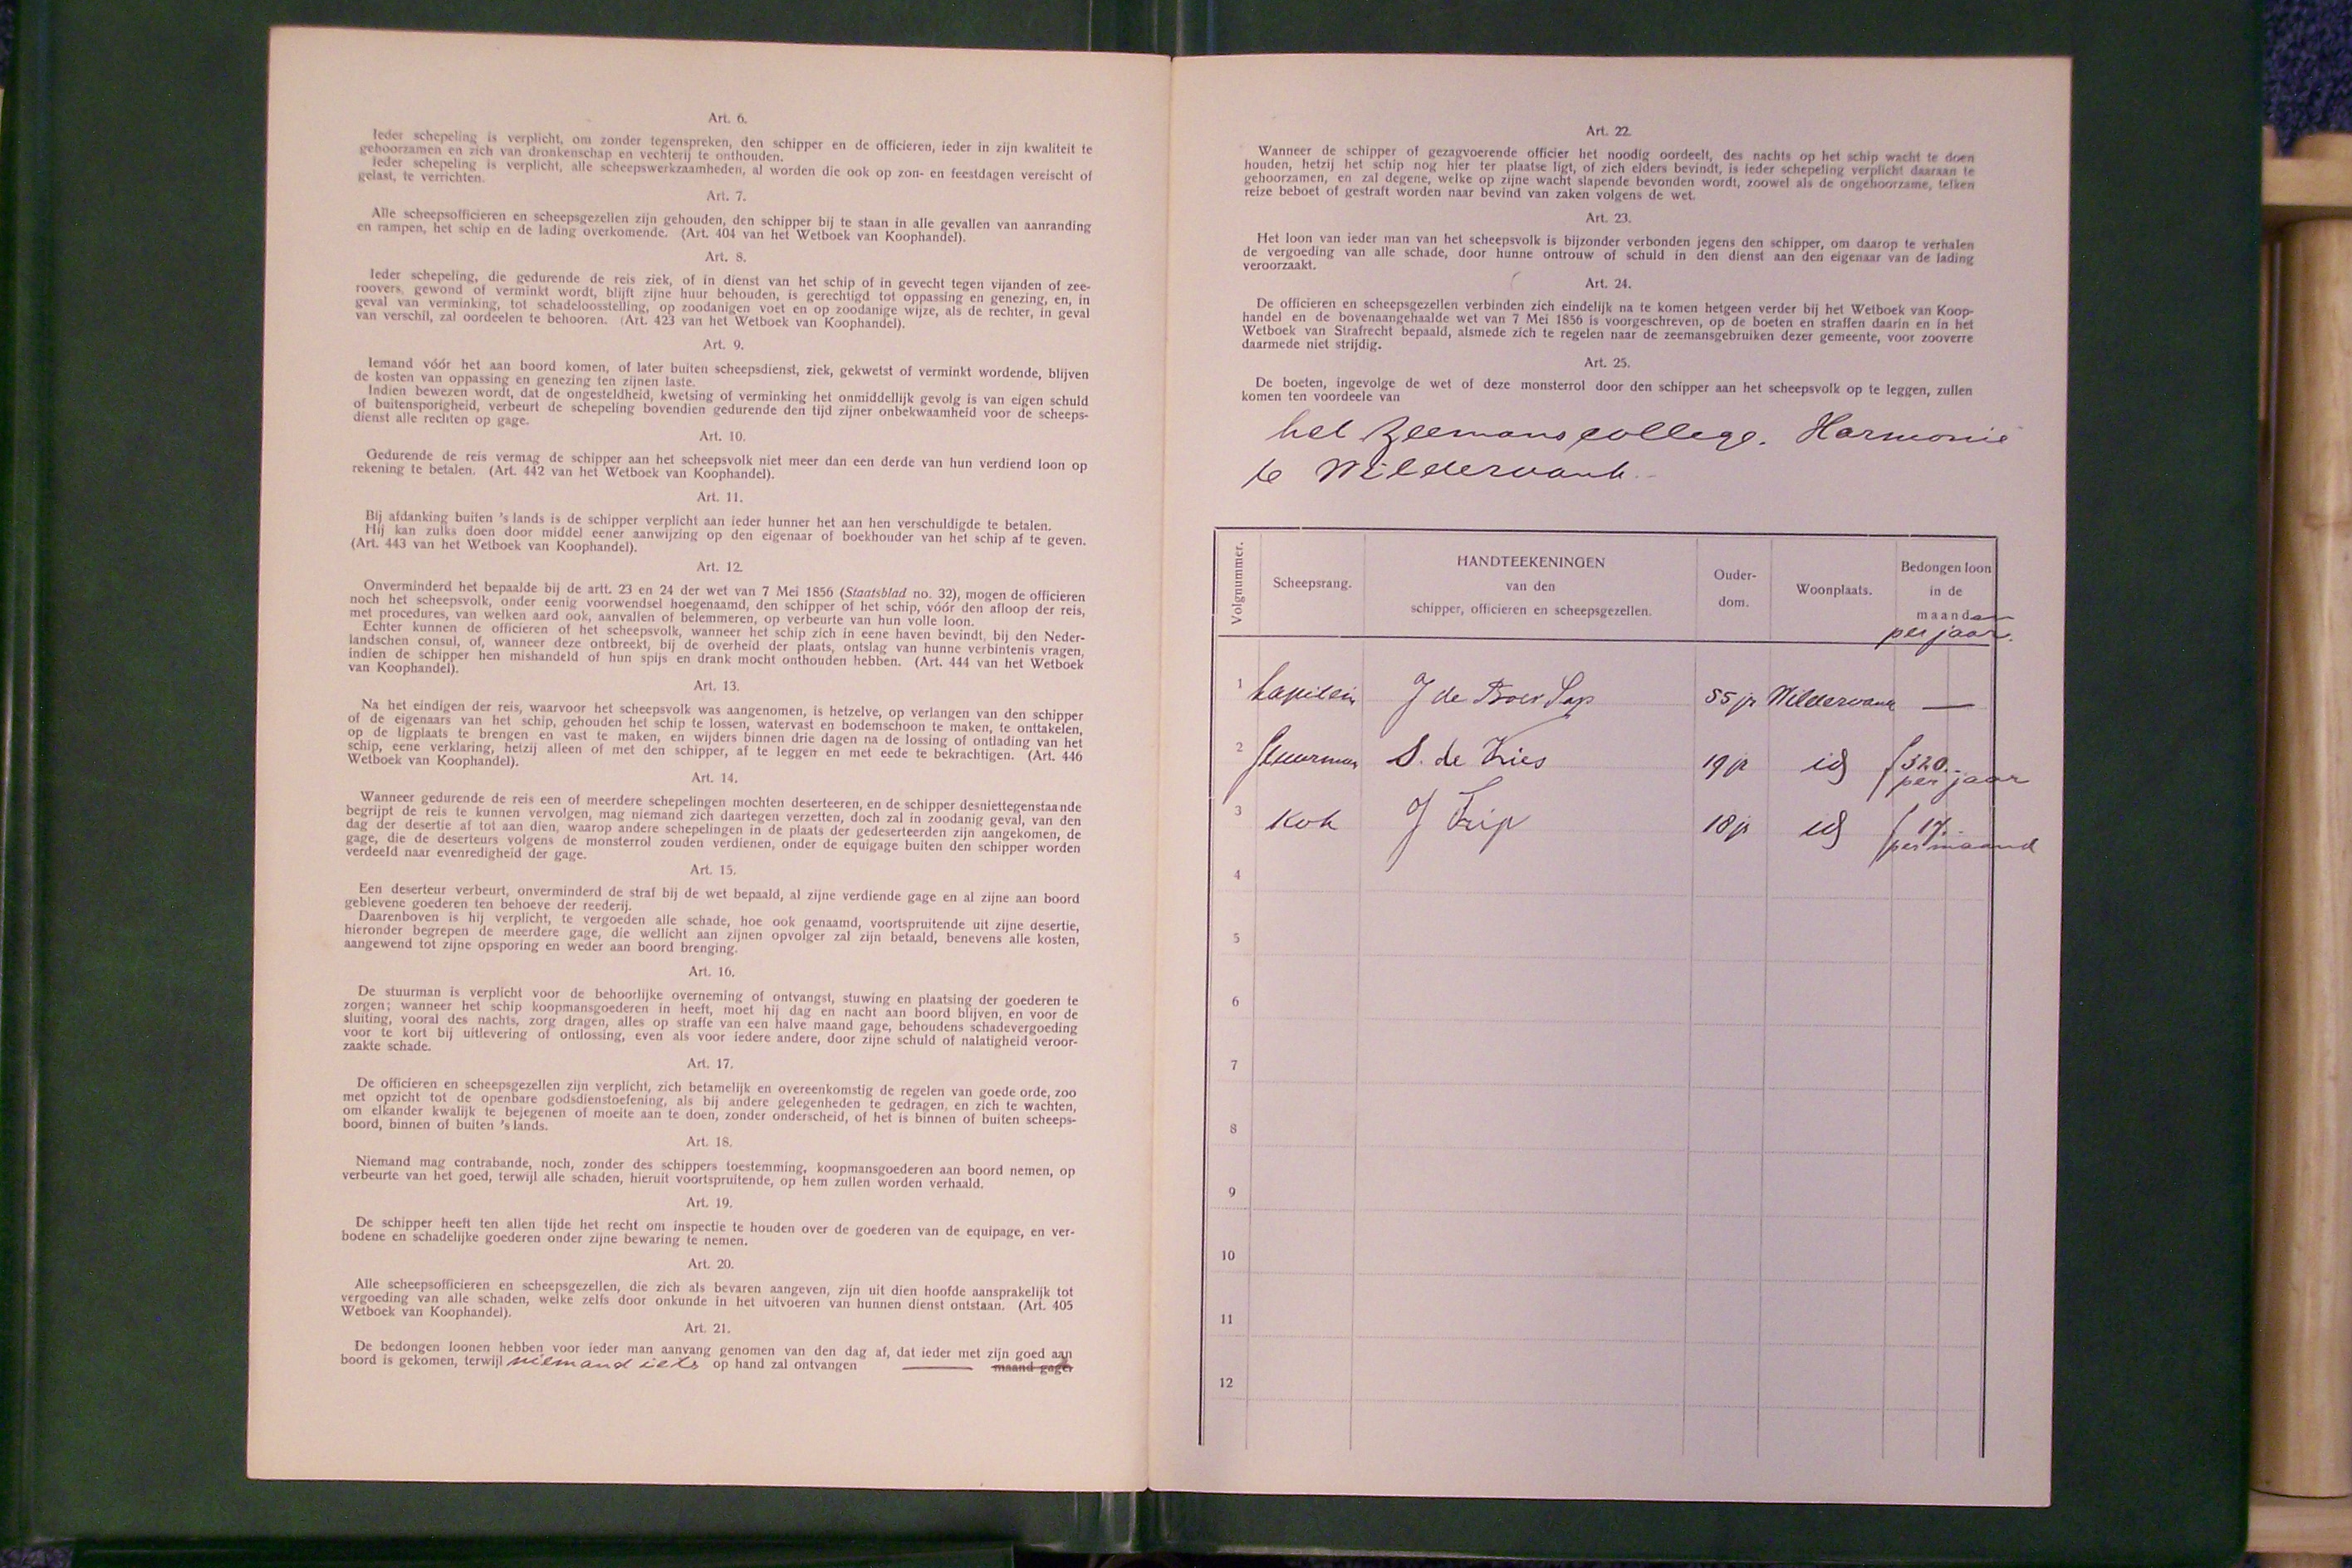 Art. 6.
Ieder schepeling is verplicht, om zonder tegenspreken, den schipper en de officieren, ieder in zijn kwaliteit te
gehoorzamen en zich van dronkenschap en vechterij te onthouden.
Ieder schepeling is verplicht, alle scheepswerkzaamheden, al worden die ook op zon- en feestdagen vereischt of
gelast, te verrichten.
Art. 7.
Alle scheepsofficieren en scheepsgezellen zijn gehouden, den schipper bij te staan in alle gevallen van aanranding
en rampen, het schip en de lading overkomende. (Art. 404 van het Wetboek van Koophandel).
Art. 8.
Ieder schepeling, die gedurende de reis ziek, of in dienst van het schip of in gevecht tegen vijanden of zee-
roovers, gewond of verminkt wordt, blijft zijne huur behouden, is gerechtigd tot oppassing en genezing, en, in
geval van verminking, tot schadeloosstelling, op zoodanigen voet en op zoodanige wijze, als de rechter, in geval
van verschil, zal oordeelen te behooren. (Art. 423 van het Wetboek van Koophandel).
Art. 9.
Iemand vóór het aan boord komen, of later buiten scheepsdienst, ziek, gekwetst of verminkt wordende, blijven
de kosten van oppassing en genezing ten zijnen laste.
Indien bewezen wordt, dat de ongesteldheid, kwetsing of verminking het onmiddellijk gevolg is van eigen schuld
of buitensporigheid, verbeurt de schepeling bovendien gedurende den tijd zijner onbekwaamheid voor de scheeps-
dienst alle rechten op gage.
Art. 10.
Gedurende de reis vermag de schipper aan het scheepsvolk niet meer dan een derde van hun verdiend loon op
rekening te betalen. (Art. 442 van het Wetboek van Koophandel).
Art. 11.
Bij afdanking buiten 's lands is de schipper verplicht aan ieder hunner het aan hen verschuldigde te betalen.
Hij kan zulks doen door middel eener aanwijzing op den eigenaar of boekhouder van het schip af te geven.
(Art. 443 van het Wetboek van Koophandel).
Art. 12.
Onverminderd het bepaalde bij de artt. 23 en 24 der wet van 7 Mei 1856 (Staatsblad no. 32), mogen de officieren
noch het scheepsvolk, onder eenig voorwendsel hoegenaamd, den schipper of het schip, vóór den afloop der reis,
met procedures, van welken aard ook, aanvallen of belemmeren, op verbeurte van hun volle loon.
Echter kunnen de officieren of het scheepsvolk, wanneer het schip zich in eene haven bevindt, bij den Neder-
landschen consul, of, wanneer deze ontbreekt, bij de overheid der plaats, ontslag van hunne verbintenis vragen,
indien de schipper hen mishandeld of hun spijs en drank mocht onthouden hebben. (Art. 444 van het Wetboek
van Koophandel).
Art. 13.
Na het eindigen der reis, waarvoor het scheepsvolk was aangenomen, is hetzelve, op verlangen van den schipper
of de eigenaars van het schip, gehouden het schip te lossen, watervast en bodemschoon te maken, te onttakelen,
op de ligplaats te brengen en vast te maken, en wijders binnen drie dagen na de lossing of ontlading van het
schip, eene verklaring, hetzij alleen of met den schipper, af te leggen en met eede te bekrachtigen. (Art. 446
Wetboek van Koophandel).
Art. 14.
Wanneer gedurende de reis een of meerdere schepelingen mochten deserteeren, en de schipper desniettegenstaande
begrijpt de reis te kunnen vervolgen, mag niemand zich daartegen verzetten, doch zal in zoodanig geval, van den
dag der desertie af tot aan dien, waarop andere schepelingen in de plaats der gedeserteerden zijn aangekomen, de
gage, die de deserteurs volgens de monsterrol zouden verdienen, onder de equigage buiten den schipper worden
verdeeld naar evenredigheid der gage.
Art. 15.
Een deserteur verbeurt, onverminderd de straf bij de wet bepaald, al zijne verdiende gage en al zijne aan boord
geblevene goederen ten behoeve der reederij.
Daarenboven is hij verplicht, te vergoeden alle schade, hoe ook genaamd, voortspruitende uit zijne desertie,
hieronder begrepen de meerdere gage, die wellicht aan zijnen opvolger zal zijn betaald, benevens alle kosten,
aangewend tot zijne opsporing en weder aan boord brenging.
Art. 16.
De stuurman is verplicht voor de behoorlijke overneming of ontvangst, stuwing en plaatsing der goederen te
zorgen; wanneer het schip koopmansgoederen in heeft, moet hij dag en nacht aan boord blijven, en voor de
sluiting, vooral des nachts, zorg dragen, alles op straffe van een halve maand gage, behoudens schadevergoeding
voor te kort bij uitlevering of ontlossing, even als voor iedere andere, door zijne schuld of nalatigheid veroor-
zaakte schade.
Art. 17.
De officieren en scheepsgezellen zijn verplicht, zich betamelijk en overeenkomstig de regelen van goede orde, zoo
met opzicht tot de openbare godsdienstoefening, als bij andere gelegenheden te gedragen, en zich te wachten,
om elkander kwalijk te bejegenen of moeite aan te doen, zonder onderscheid, of het is binnen of buiten scheeps-
boord, binnen of buiten 's lands.
Art. 18.
Niemand mag contrabande, noch, zonder des schippers toestemming, koopmansgoederen aan boord nemen, op
verbeurte van het goed, terwijl alle schaden, hieruit voortspruitende, op hem zullen worden verhaald.
Art. 19.
De schipper heeft ten allen tijde het recht om inspectie te houden over de goederen van de equipage, en ver-
bodene en schadelijke goederen onder zijne bewaring te nemen.
Art. 20.
Alle scheepsofficieren en scheepsgezellen, die zich als bevaren aangeven, zijn uit dien hoofde aansprakelijk tot
vergoeding van alle schaden, welke zelfs door onkunde in het uitvoeren van hunnen dienst ontstaan. (Art. 405
Wetboek van Koophandel).
Art. 21.
De bedongen loonen hebben voor ieder man aanvang genomen van den dag af, dat ieder met zijn goed aan
boord is gekomen, terwijl niemand iets op hand zal ontvangen maand gage.
Art. 22.
Wanneer de schipper of gezagvoerende officier het noodig oordeelt, des nachts op het schip wacht te doen
houden, hetzij het schip nog hier ter plaatse ligt, of zich elders bevindt, is ieder schepeling verplicht daaraan te
gehoorzamen, en zal degene, welke op zijne wacht slapende bevonden wordt, zoowel als de ongehoorzame, telken
reize beboet of gestraft worden naar bevind van zaken volgens de wet.
Art. 23.
Het loon van ieder man van het scheepsvolk is bijzonder verbonden jegens den schipper, om daarop te verhalen
de vergoeding van alle schade, door hunne ontrouw of schuld in den dienst aan den eigenaar van de lading
veroorzaakt.
Art. 24.
De officieren en scheepsgezellen verbinden zich eindelijk na te komen hetgeen verder bij het Wetboek van Koop-
handel en de bovenaangehaalde wet van 7 Mei 1856 is voorgeschreven, op de boeten en straffen daarin en in het
Wetboek van Strafrecht bepaald, alsmede zich te regelen naar de zeemansgebruiken dezer gemeente, voor zooverre
daarmede niet strijdig.
Art. 25.
De boeten, ingevolge de wet of deze monsterrol door den schipper aan het scheepsvolk op te leggen, zullen
komen ten voordeele van
het Zeemanscollege. Harmonie
te Wildervank.
Volgnummer. Scheepsrang. HANDTEEKENINGEN van den schipper, officieren en scheepsgezellen. Ouder-dom. Woonplaats. Bedongen loon in de maanden
per jaar.
1 Kapitein J de Boer Sap 55 jr Wildervank —
2 Stuurman S. de Vries 19 jr id f 320.-
per jaar
3 Kok J Trip 18 jr id f 17.-
per maand
4
5
6
7
8
9
10
11
12